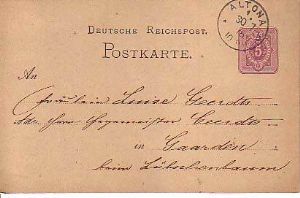 ALTONA
DEUTSCHE REICHSPOST.
POSTKARTE.
5
An
Fräulein Luise Geerdts
Geerdts
in
Gaarden
beim Lübschenbaum